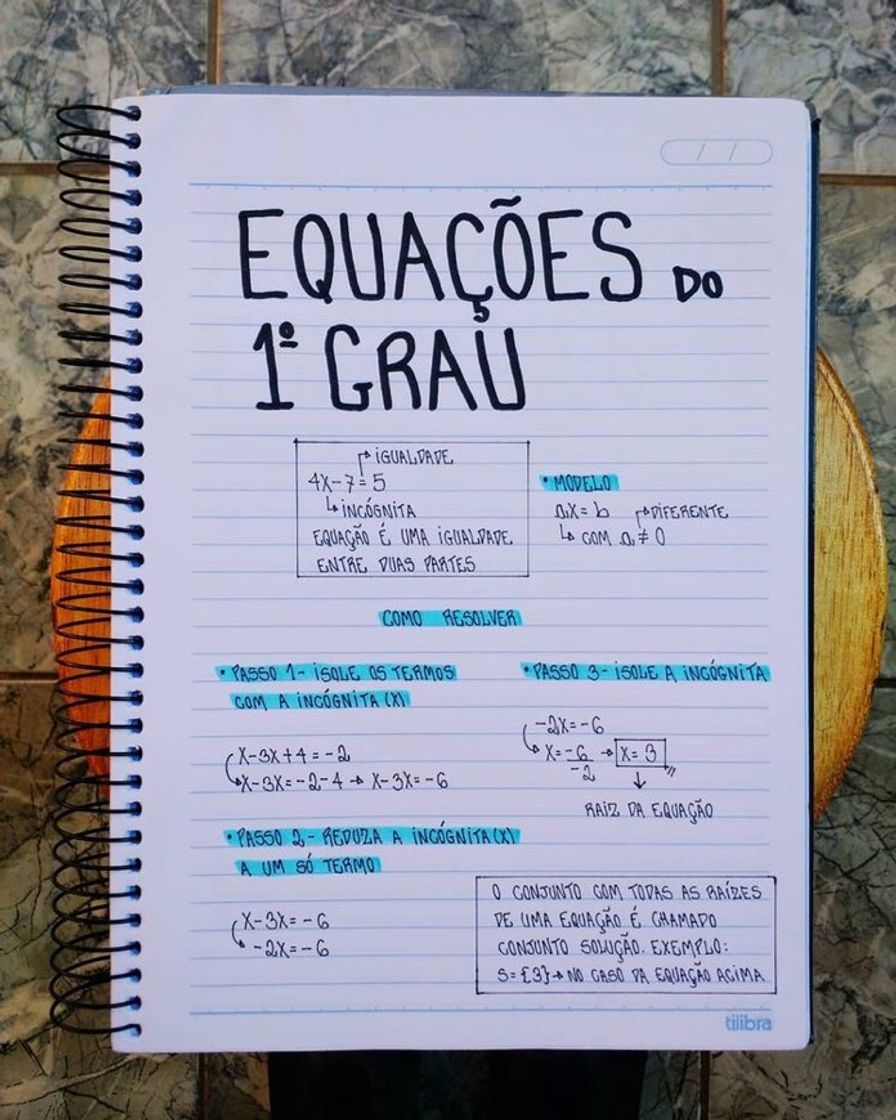 EQUAÇÕES DO
1º GRAU
IGUALDADE
4X-7=5
INCÓGNITA
EQUAÇÃO É UMA IGUALDADE
ENTRE DUAS PARTES
• MODELO
a.X=b
DIFERENTE
COM a≠0
COMO RESOLVER
• PASSO 1- ISOLE OS TERMOS
COM A INCÓGNITA (X)
X-3X+4=-2
X-3X=-2-4→X-3X=-6
• PASSO 2- REDUZA A INCÓGNITA (X)
A UM SÓ TERMO
X-3X=-6
-2X=-6
• PASSO 3- ISOLE A INCÓGNITA
-2X=-6
X=-6/-2→X=3
RAIZ DA EQUAÇÃO
O CONJUNTO COM TODAS AS RAÍZES
DE UMA EQUAÇÃO É CHAMADO
CONJUNTO SOLUÇÃO. EXEMPLO:
S={3}→NO CASO DA EQUAÇÃO ACIMA
tilibra